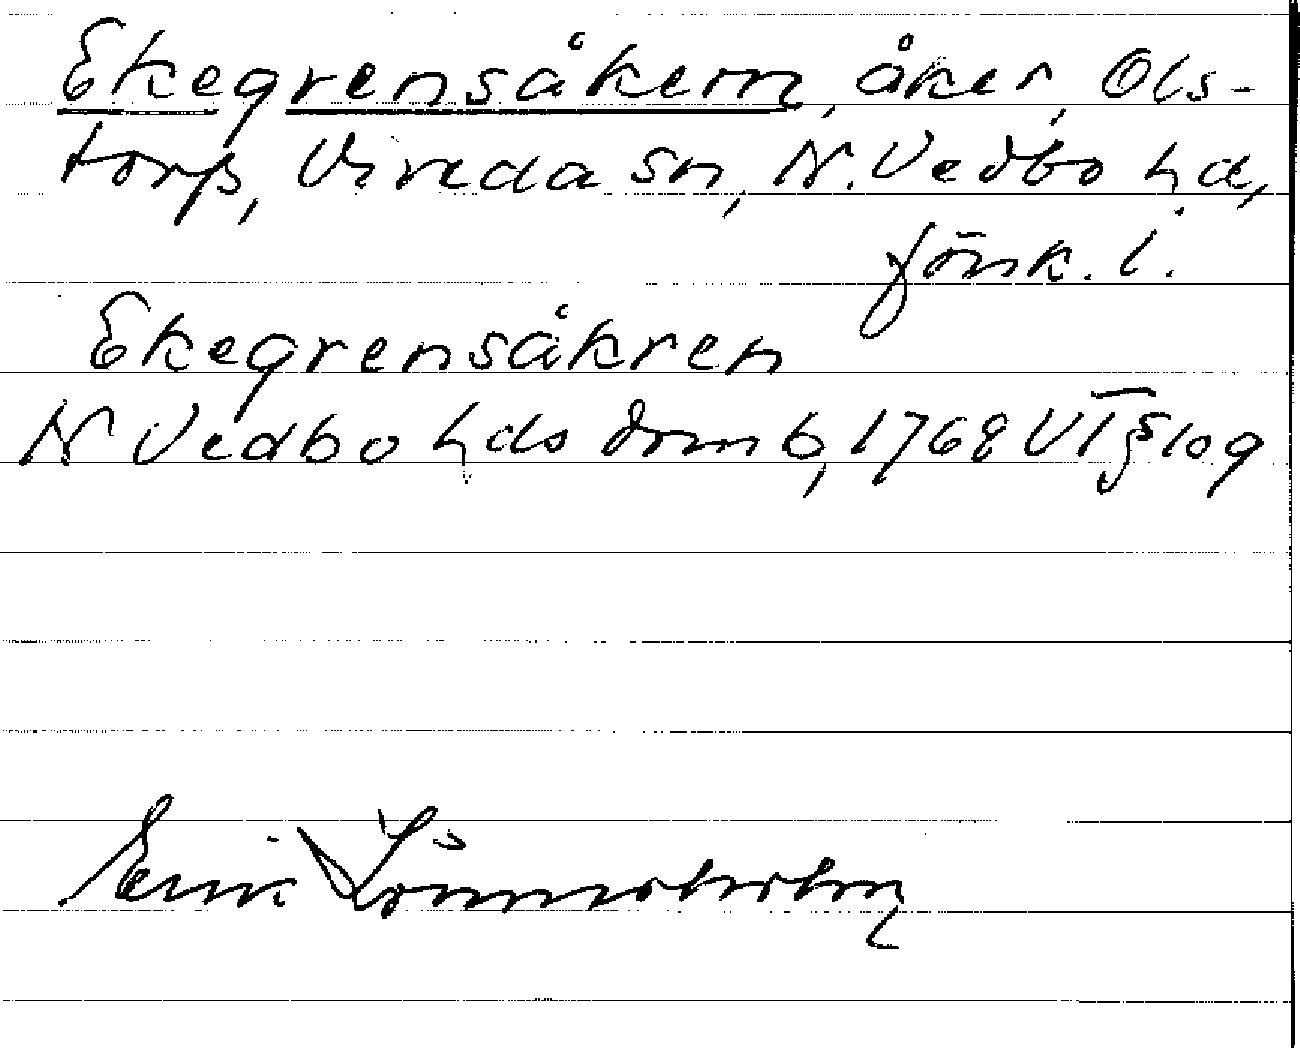 Ekegrensåkern, åker, Ols-
torp, Vireda sn, N. Vedbo hd,
Jönk. l.
Ekegrensåkren
N Vedbo hds domb, 1768 VI § 109
Erik Lönnerholm